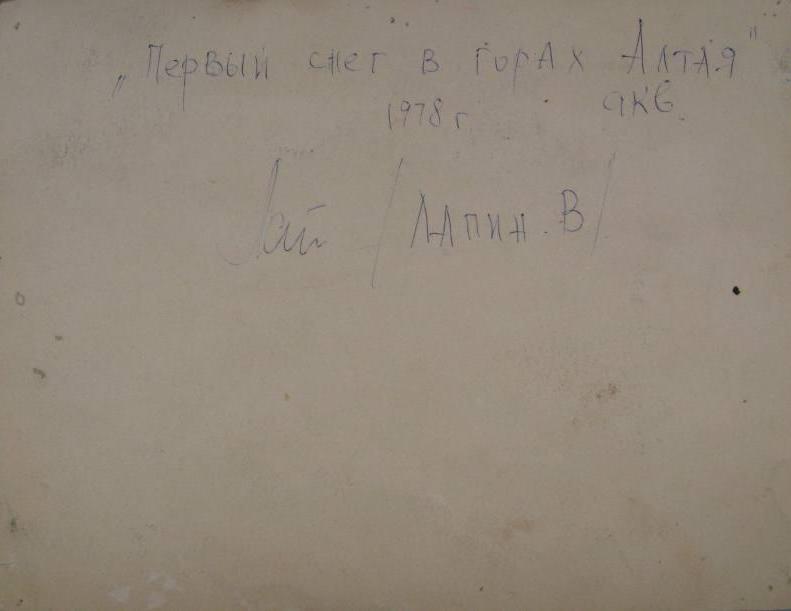 „Первый снег в горах Алтая"
1978 г. акв.
/Лапин. В/